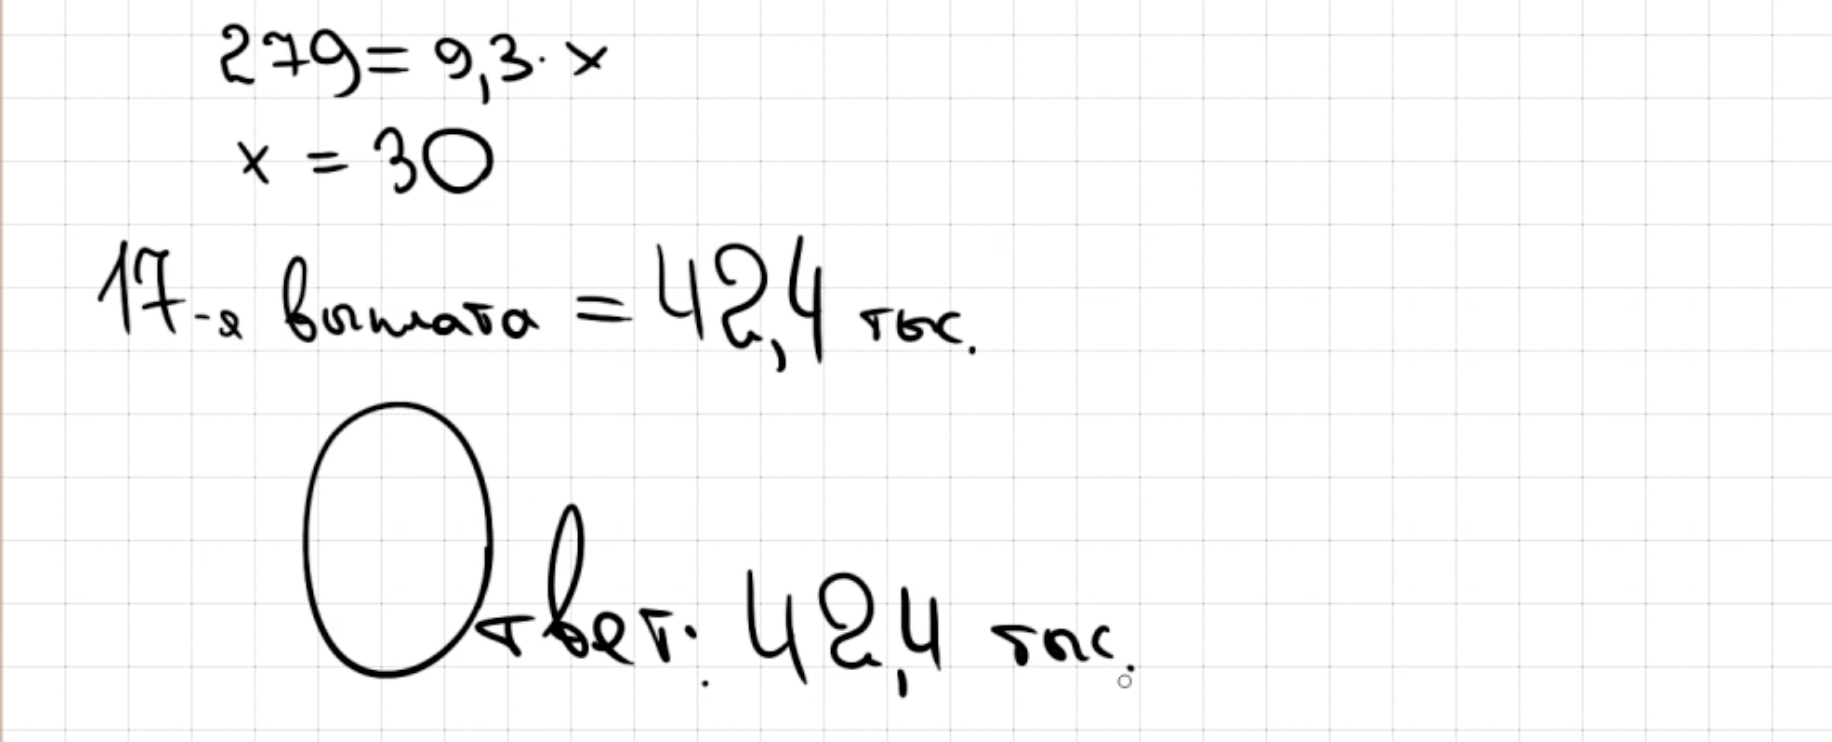 279 = 9,3 · x
x = 30
17-я выплата = 42,4 тыс.
Ответ: 42,4 тыс.